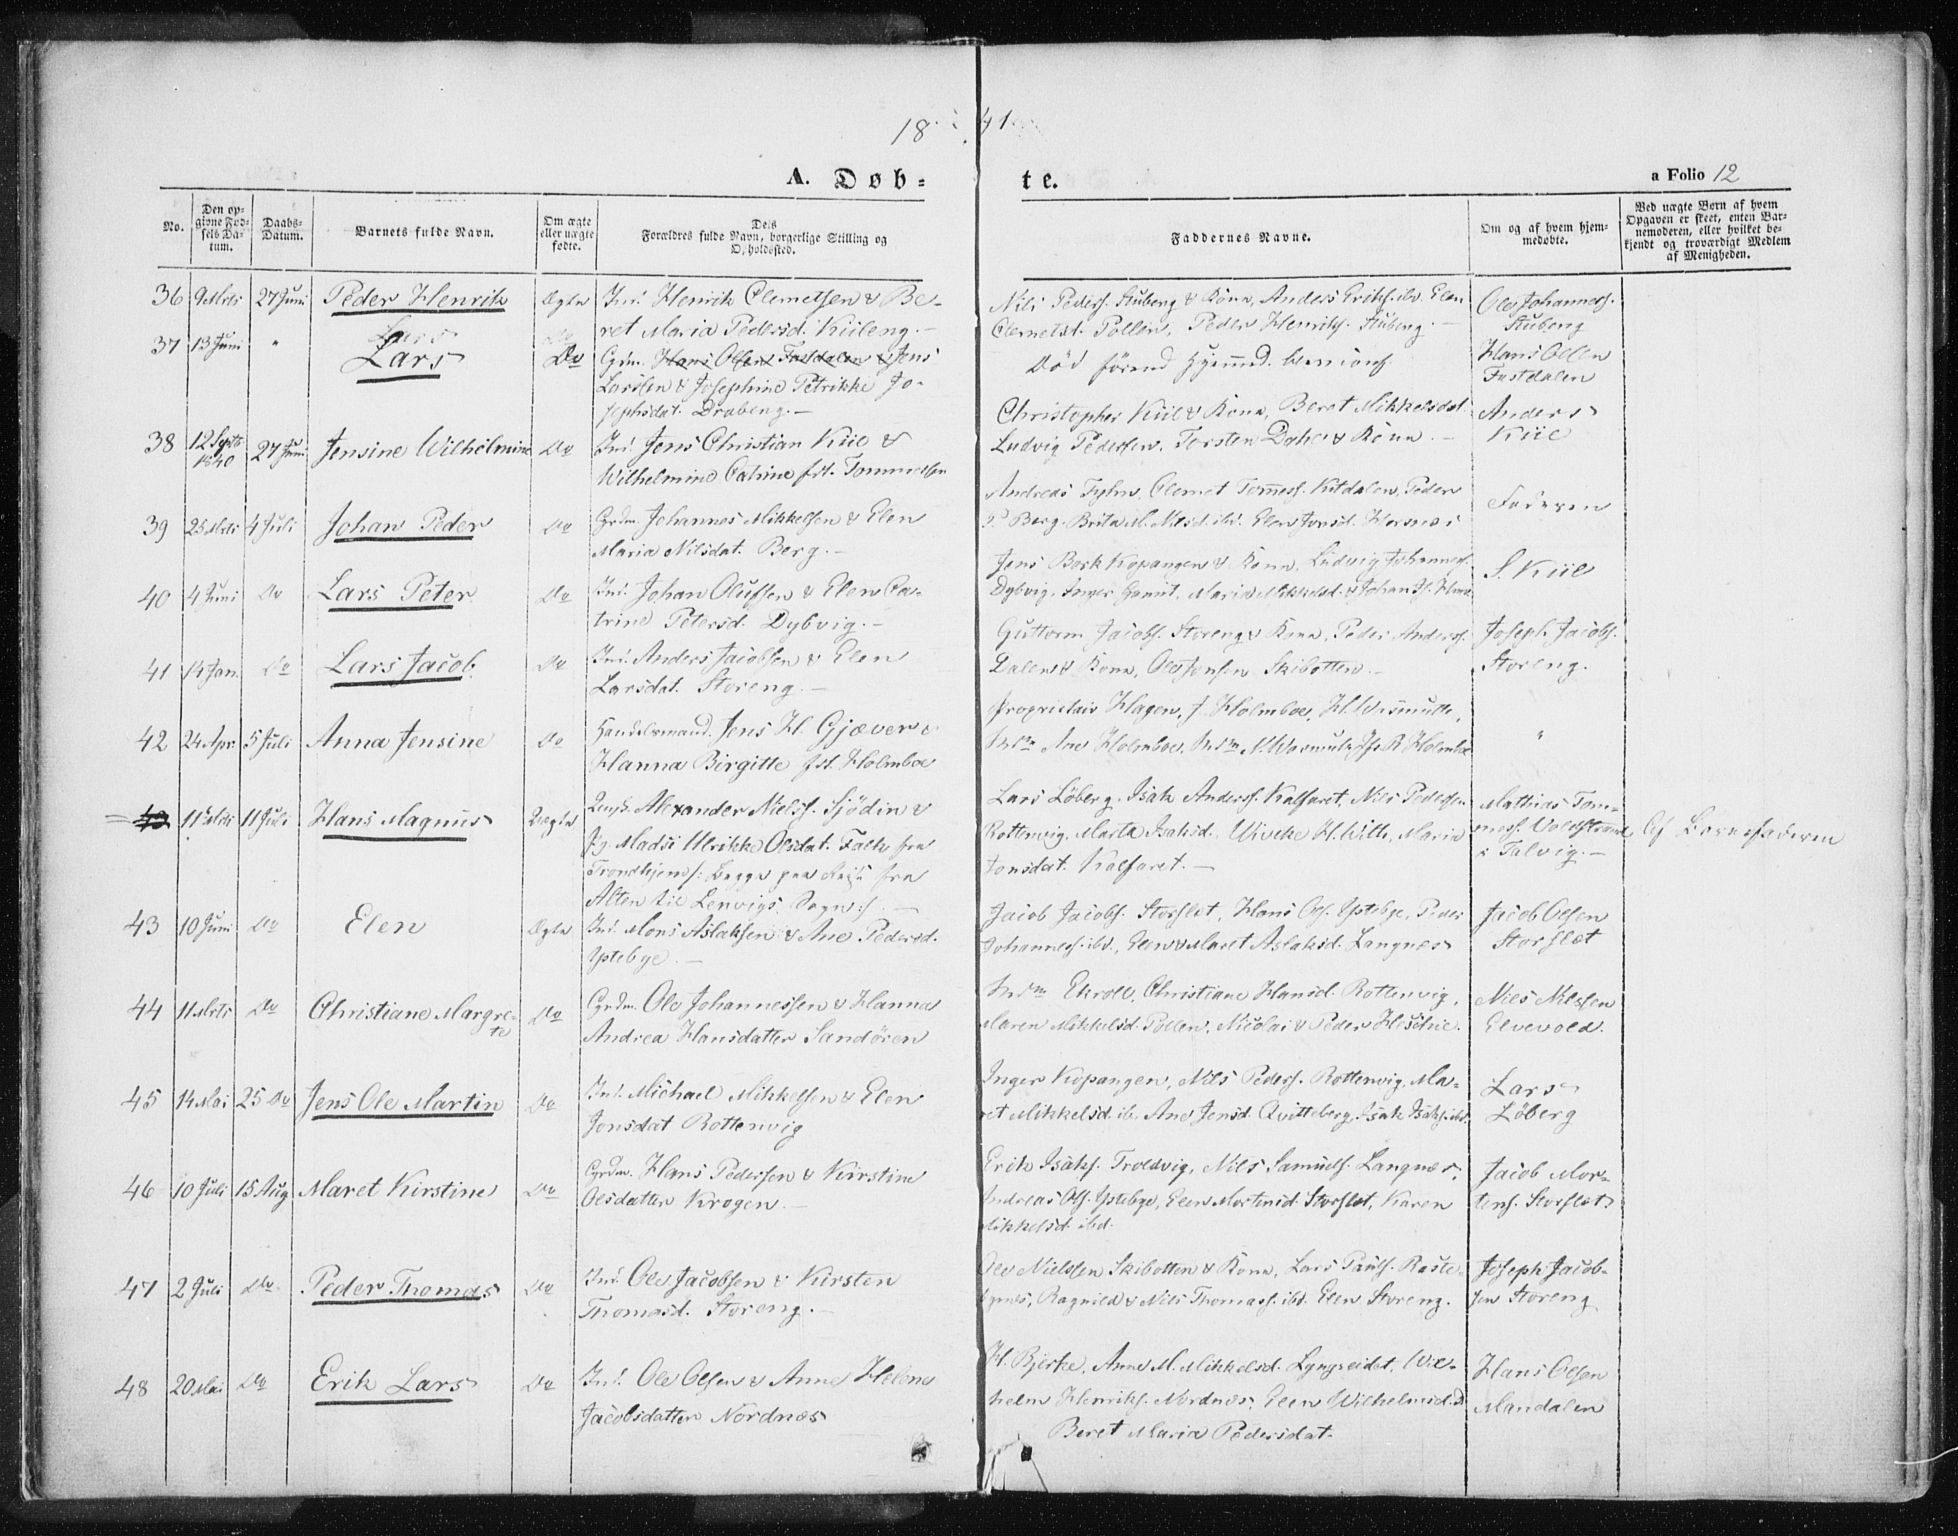 1841
A. Døbte.
a Folio 12
No.
Den opgivne Fødsels Datum.
Daabs-Datum.
Barnets fulde Navn.
Om ægte eller uægte fødte.
Dets Forældres fulde Navn, borgerlige Stilling og Opholdssted.
Faddernes Navne.
Om og af hvem hjemmedøbte.
Ved uægte Børn af hvem Opgaven er skeet, enten Barnemoderen, eller hvilket bekjendt og troværdigt Medlem af Menigheden.
36 9 Mrts 27 Juni Peder Henrik Ægte Ind. Henrik Clemetsen & Be-
ret Maria Pedersd. Kiileng.
Nils Peders. Stuberg & Kona, Anders Eriks. ibd. Elen
Clemetsd. Pollen, Peder Henriks. Stuberg.
Ole Johanness.
Stubeng
37 13 Juni " Lars Do Grdm. Hans Olsen Fastdalen & Jens
Larssen & Josephine Petrikke Jo-
sephsdat. Draбeng.
Død førend
Hans Olsen
Fastdalen
38 12 Septb 1840 27 Juni Jensine Wilhelmine Do Ind. Jens Christian Kiil &
Wilhelmine Catrine fdt. Tommesen
Christopher Kiil & Kona, Beret Mikkelsdat.
Ludvig Pedersen, Torsten & Kona.
Anders
Kiil
39 25 Mrts 4 Juli Johan Peder Do Grdm. Johannes Mikkelsen & Elen
Maria Nilsdat. Berg.
Andreas Fyhn, Clemet Tomess. Kitdalen, Peder
Berg. Elen Jonsd. Horsnes
Faderen
40 4 Juni Do Lars Peter Do Ind. Johan Olufsen & Elen Ca-
trine Petersd. Dybvig.
Jens Bask Kopangen & Kona, Ludvig Johanness.
Dybvig, Inger Maria Mikkelsd. & Johan
S. Kiil
41 14 Jan. Do Lars Jacob Do Ind. Anders Jacobsen & Elen
Larsdat. Storeng.
Guttorm Jacobs. Storeng & Kona, Peder Anders.
Dalen & Kona, Ole Jonsen Skibotten.
Joseph Jacobs.
Storeng.
42 24 Apr. 5 Juli Anna Jensine Do Handelsmand Jens H. Gjæver &
Hanna Birgitte fdt. Holmboe
Proprietair Hagen, J. Holmboe, H. Wasmuth,
Mdm Ane Holmboe, Mdm N. Wasmuth, Jfr R Holmboe
"
43 11 Mrts 11 Juli Hans Magnus Uægte Ungk. Alexander Niels. Sjödin &
Pg. Madsi Ulrikke Olsdat. Falk fra
Trondhjem /: begge paa Reise fra
Alten til Lenvigs Sogn :/.
Lars Löberg, Isak Anders. Kalfaret, Nils Pedersen
Rottenvig, Marta Isaksd., Wivcke H. With, Maria
Jonsdat. Kalfaret.
Mathias Tom-
mess. Voldstrand
i Talvig.
Af Barnefaderen
43 10 Juni Do Elen Ægte Ind. Mons Aslaksen & Ane Pedersd.
Ystebye.
Jacob Jacobs. Storslet, Hans Ols. Ystebye, Peder
Johanness. ibd., Elen & Maret Aslaksd. Langnes
Jacob Olsen
Storslet
44 11 Mrts Do Christiane Margre-
te Do Grdm. Ole Johannessen & Hanna
Andrea Hansdatter Sandören
Mdm Ekroll, Christiane Hansd. Rottenvig,
Maren Mikkelsd. Pollen, Nicolai & Peder
Niels Nilssen
Elvevold.
45 14 Mai 25 Do Jens Ole Martin Do Ind. Michael Mikkelsen & Elen
Jonsdat Rottenvig
Inger Kopangen, Nils Peders. Rottenvig, Ma-
ret Mikkelsd. ib. Ane Jensd. Qvitteberg, Isak Isaks. ibd.
Lars
Löberg
46 10 Juli 15 Aug Maret Kirstine Do Grdm. Hans Pedersen & Kirstine
Olsdatter Krogen.
Erik Isaks. Troldvig, Nils Samuels. Langnes,
Andreas Ols. Ystebye, Elen Mortensd. Storslet, Karen
Mikkelsd. ibd.
Jacob Mor-
tens. Storslet
47 2 Juli Do Peder Thomas Do Ind. Ole Jacobsen & Kirsten
Thomasd. Storeng.
Ole Nielssen Skibotten & Kona, Lars Pauls. Raste-
bynes, Ragnild & Nils Thomass. ibd. Elen Storeng.
Joseph Jacob-
sen Storeng
48 20 Mai Do Erik Lars Do Ind. Ole Olsen & Anne Helene
Jacobsdatter Nordnæs
H. Bjerke, Anne M. Mikkelsd. Lyngseidet, Wil-
helm Henriks. Nordnæs, Elen Wilhelmsd.
Beret Maria Pedersdat.
Hans Olsen
Mandalen